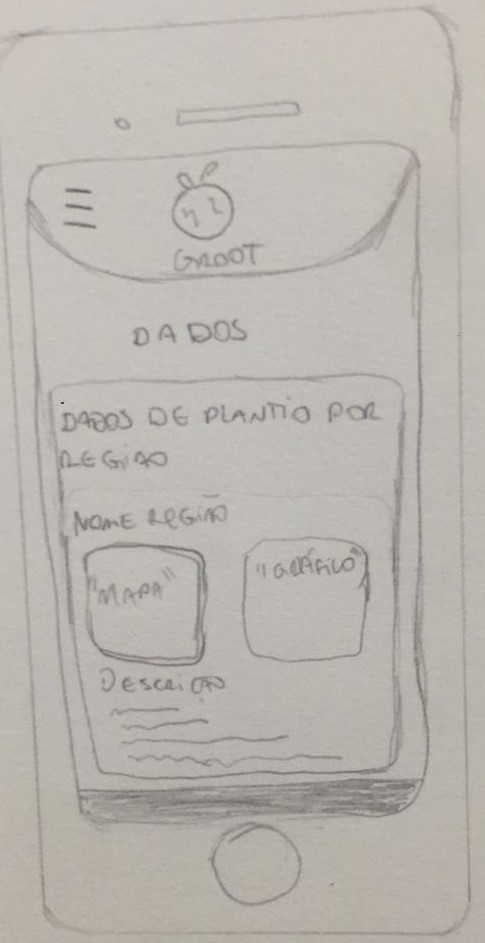 GROOT
DADOS
DADOS DE PLANTIO POR
REGIÃO
NOME REGIÃO
"MAPA"
"GRÁFICO"
DESCRIÇÃO